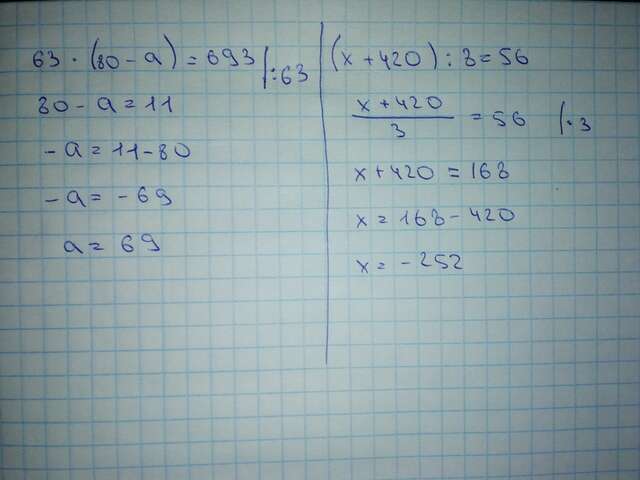 63 · (80 - a) = 693 |:63
80 - a = 11
- a = 11 - 80
- a = - 69
a = 69
(x + 420) : 3 = 56
x + 420
3
= 56 |· 3
x + 420 = 168
x = 168 - 420
x = - 252